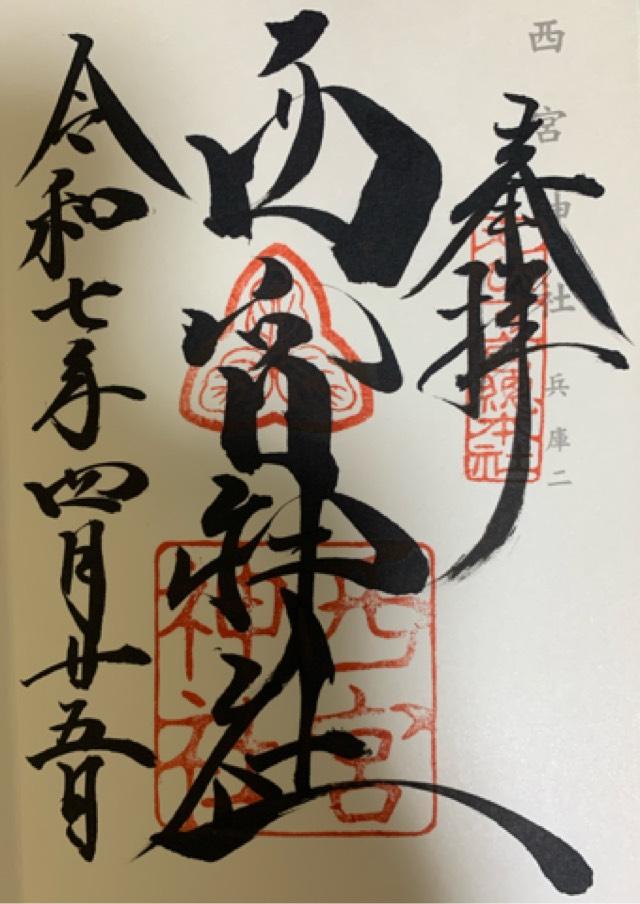 西宮神社 兵庫二
奉拝
西宮神社
西宮
神社
令和七年四月廿五日